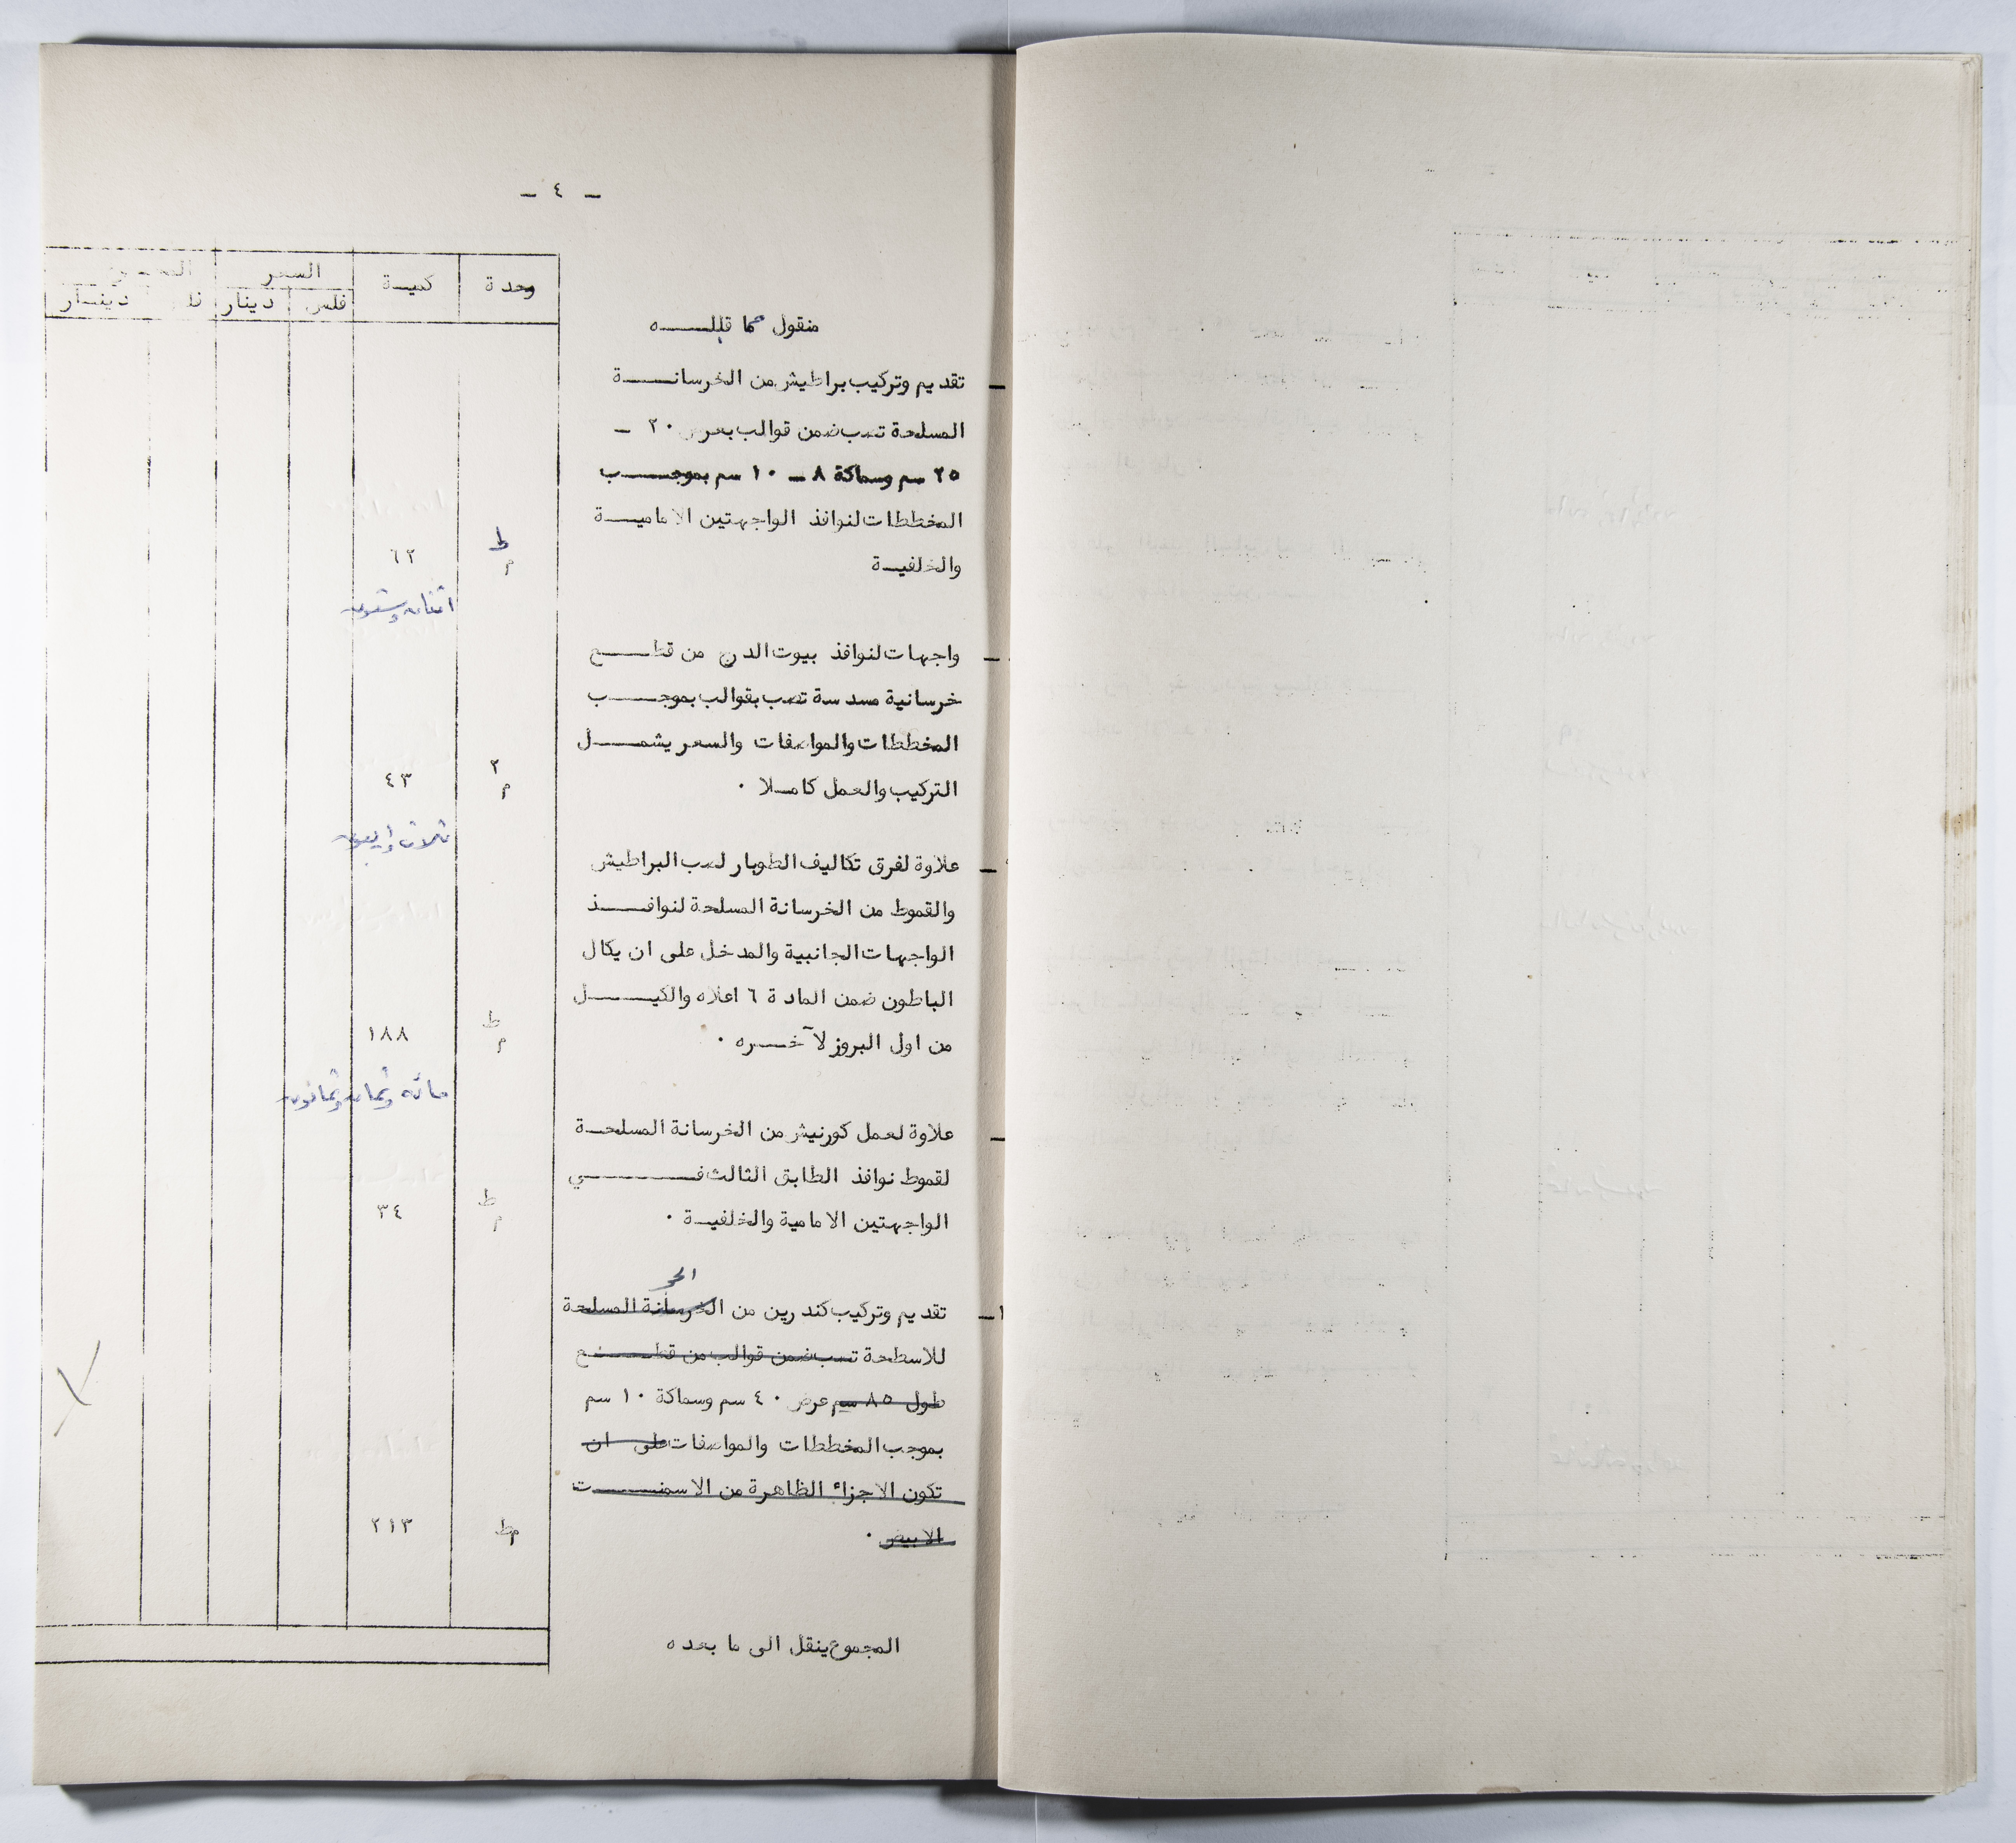 - ٤ -
وحدة كمية السعر
فلس دينار دينار
منقول مما قبله
تقديم وتركيب براطيش من الخرسانة
المسلحة تصب ضمن قوالب بعرض ٢٠ -
٢٥ سم وسماكة ٨ - ١٠ سم بموجب
المخططات لنوافذ الواجهتين الامامية
والخلفية
م ط ٦٢
اثنان وستون
واجهات لنوافذ بيوت الدرج من قطع
خرسانية مسدسة تصب بقوالب بموجب
المخططات والمواصفات والسعر يشمل
التركيب والعمل كاملا .
م٢ ٤٣
ثلاث واربعون
علاوة لفرق تكاليف الطوبار لصب البراطيش
والقموط من الخرسانة المسلحة لنوافذ
الواجهات الجانبية والمدخل على ان يكال
الباطون ضمن المادة ٦ اعلاه والكيل
من اول البروز لآخره .
م ط ١٨٨
مائه وثمان وثمانون
علاوة لعمل كورنيش من الخرسانة المسلحة
لقموط نوافذ الطابق الثالث في
الواجهتين الامامية والخلفية .
م ط ٣٤
تقديم وتركيب كندرين من الخرسانة المسلحة
للاسطحة تصب ضمن قوالب من قطع
طول ٨٥ سم عرض ٤٠ سم وسماكة ١٠ سم
بموجب المخططات والمواصفات على ان
تكون الاجزاء الظاهرة من الاسمنت
الابيض .
م ط ٢١٣
المجموع ينقل الى ما بعده